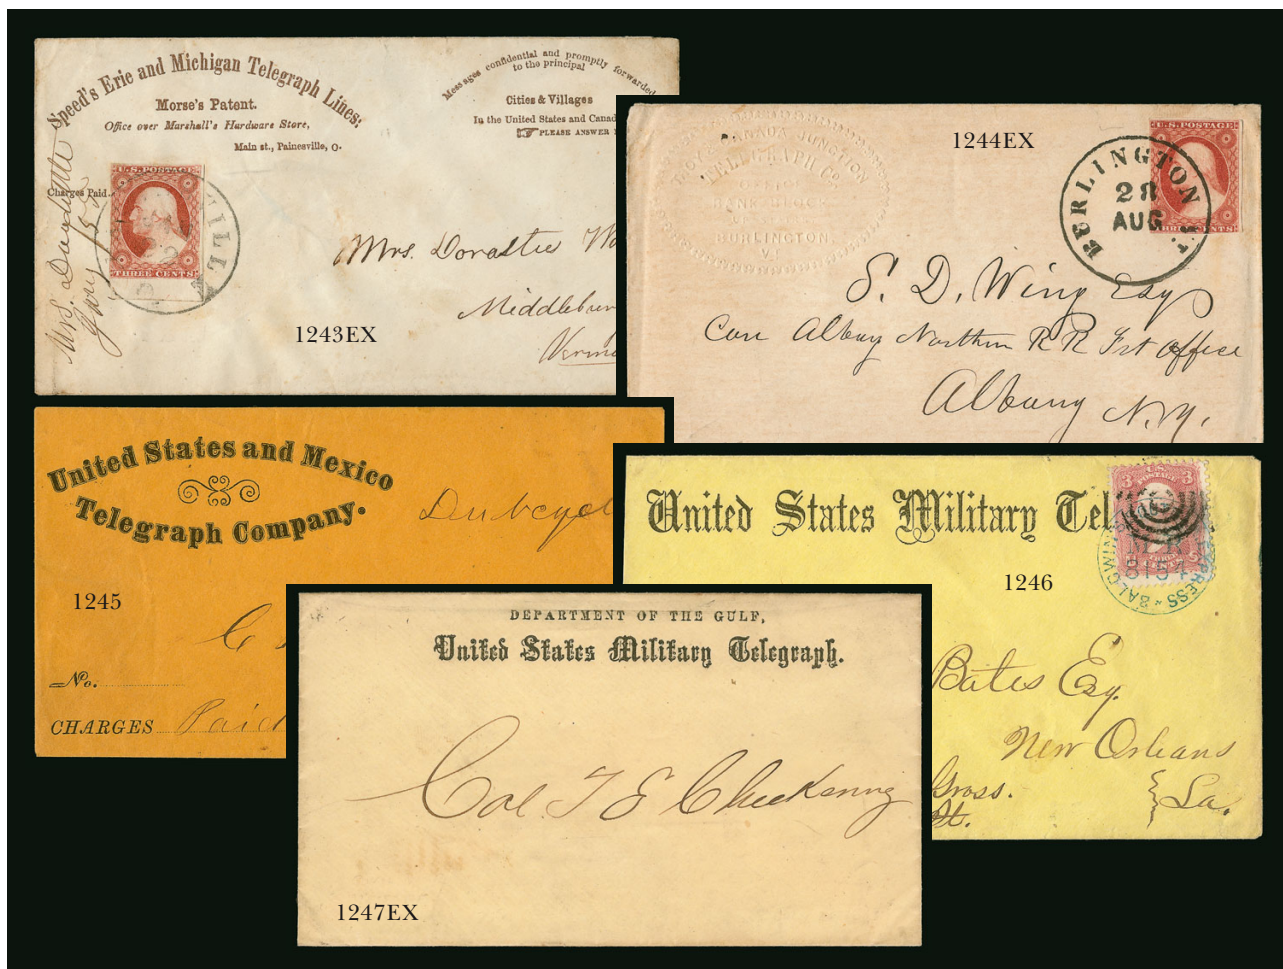 Speed's Erie and Michigan Telegraph Lines;
Morse's Patent.
Office over Marshall's Hardware Store,
Main st., Painesville, O.
Messages confidential and promptly forwarded
to the principal
Cities & Villages
In the United States and Canad
PLEASE ANSWER
Charges Paid.
U.S. POSTAGE
THREE CENTS
ILL
Mrs.
Mrs.
Middlebur
Vermo
1243EX
CANADA JUNCTION
TELEGRAPH Co.
BANK BLOCK
BURLINGTON.
VT
1244EX
U.S. POSTAGE
THREE CENTS
BERLINGTON VT.
28
AUG
S. D. Wing Esq
Care Albany Northern R R Frt office
Albany N.Y.
United States and Mexico
Telegraph Company.
1245
No.
CHARGES Paid
United States Military Tel
U.S.
POSTAGE
3 3
1246
Bates Esq.
New Orleans
La.
Gross.
St.
DEPARTMENT OF THE GULF,
United States Military Telegraph.
Col T E Chickering
1247EX